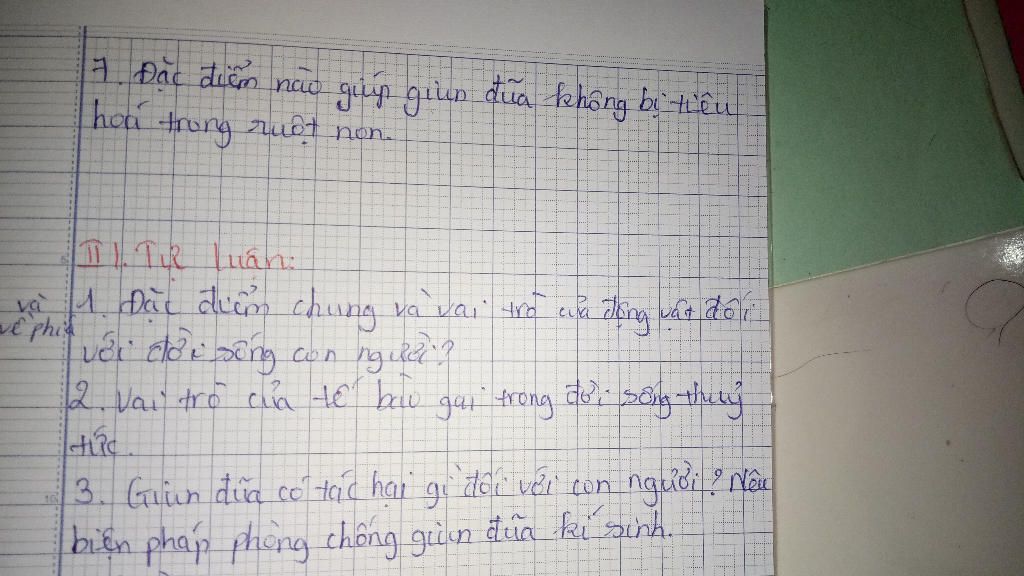 7. Đặc điểm nào giúp giun đũa không bị tiêu
hoá trong ruột non.
II). Tự luận:
1. Đặc điểm chung và vai trò của động vật đối
và
về phía
với đời sống con người?
2. Vai trò của tế bào gai trong đời sống thuỷ
tức.
3. Giun đũa có tác hại gì đối với con người? Nêu
biện pháp phòng chống giun đũa kí sinh.